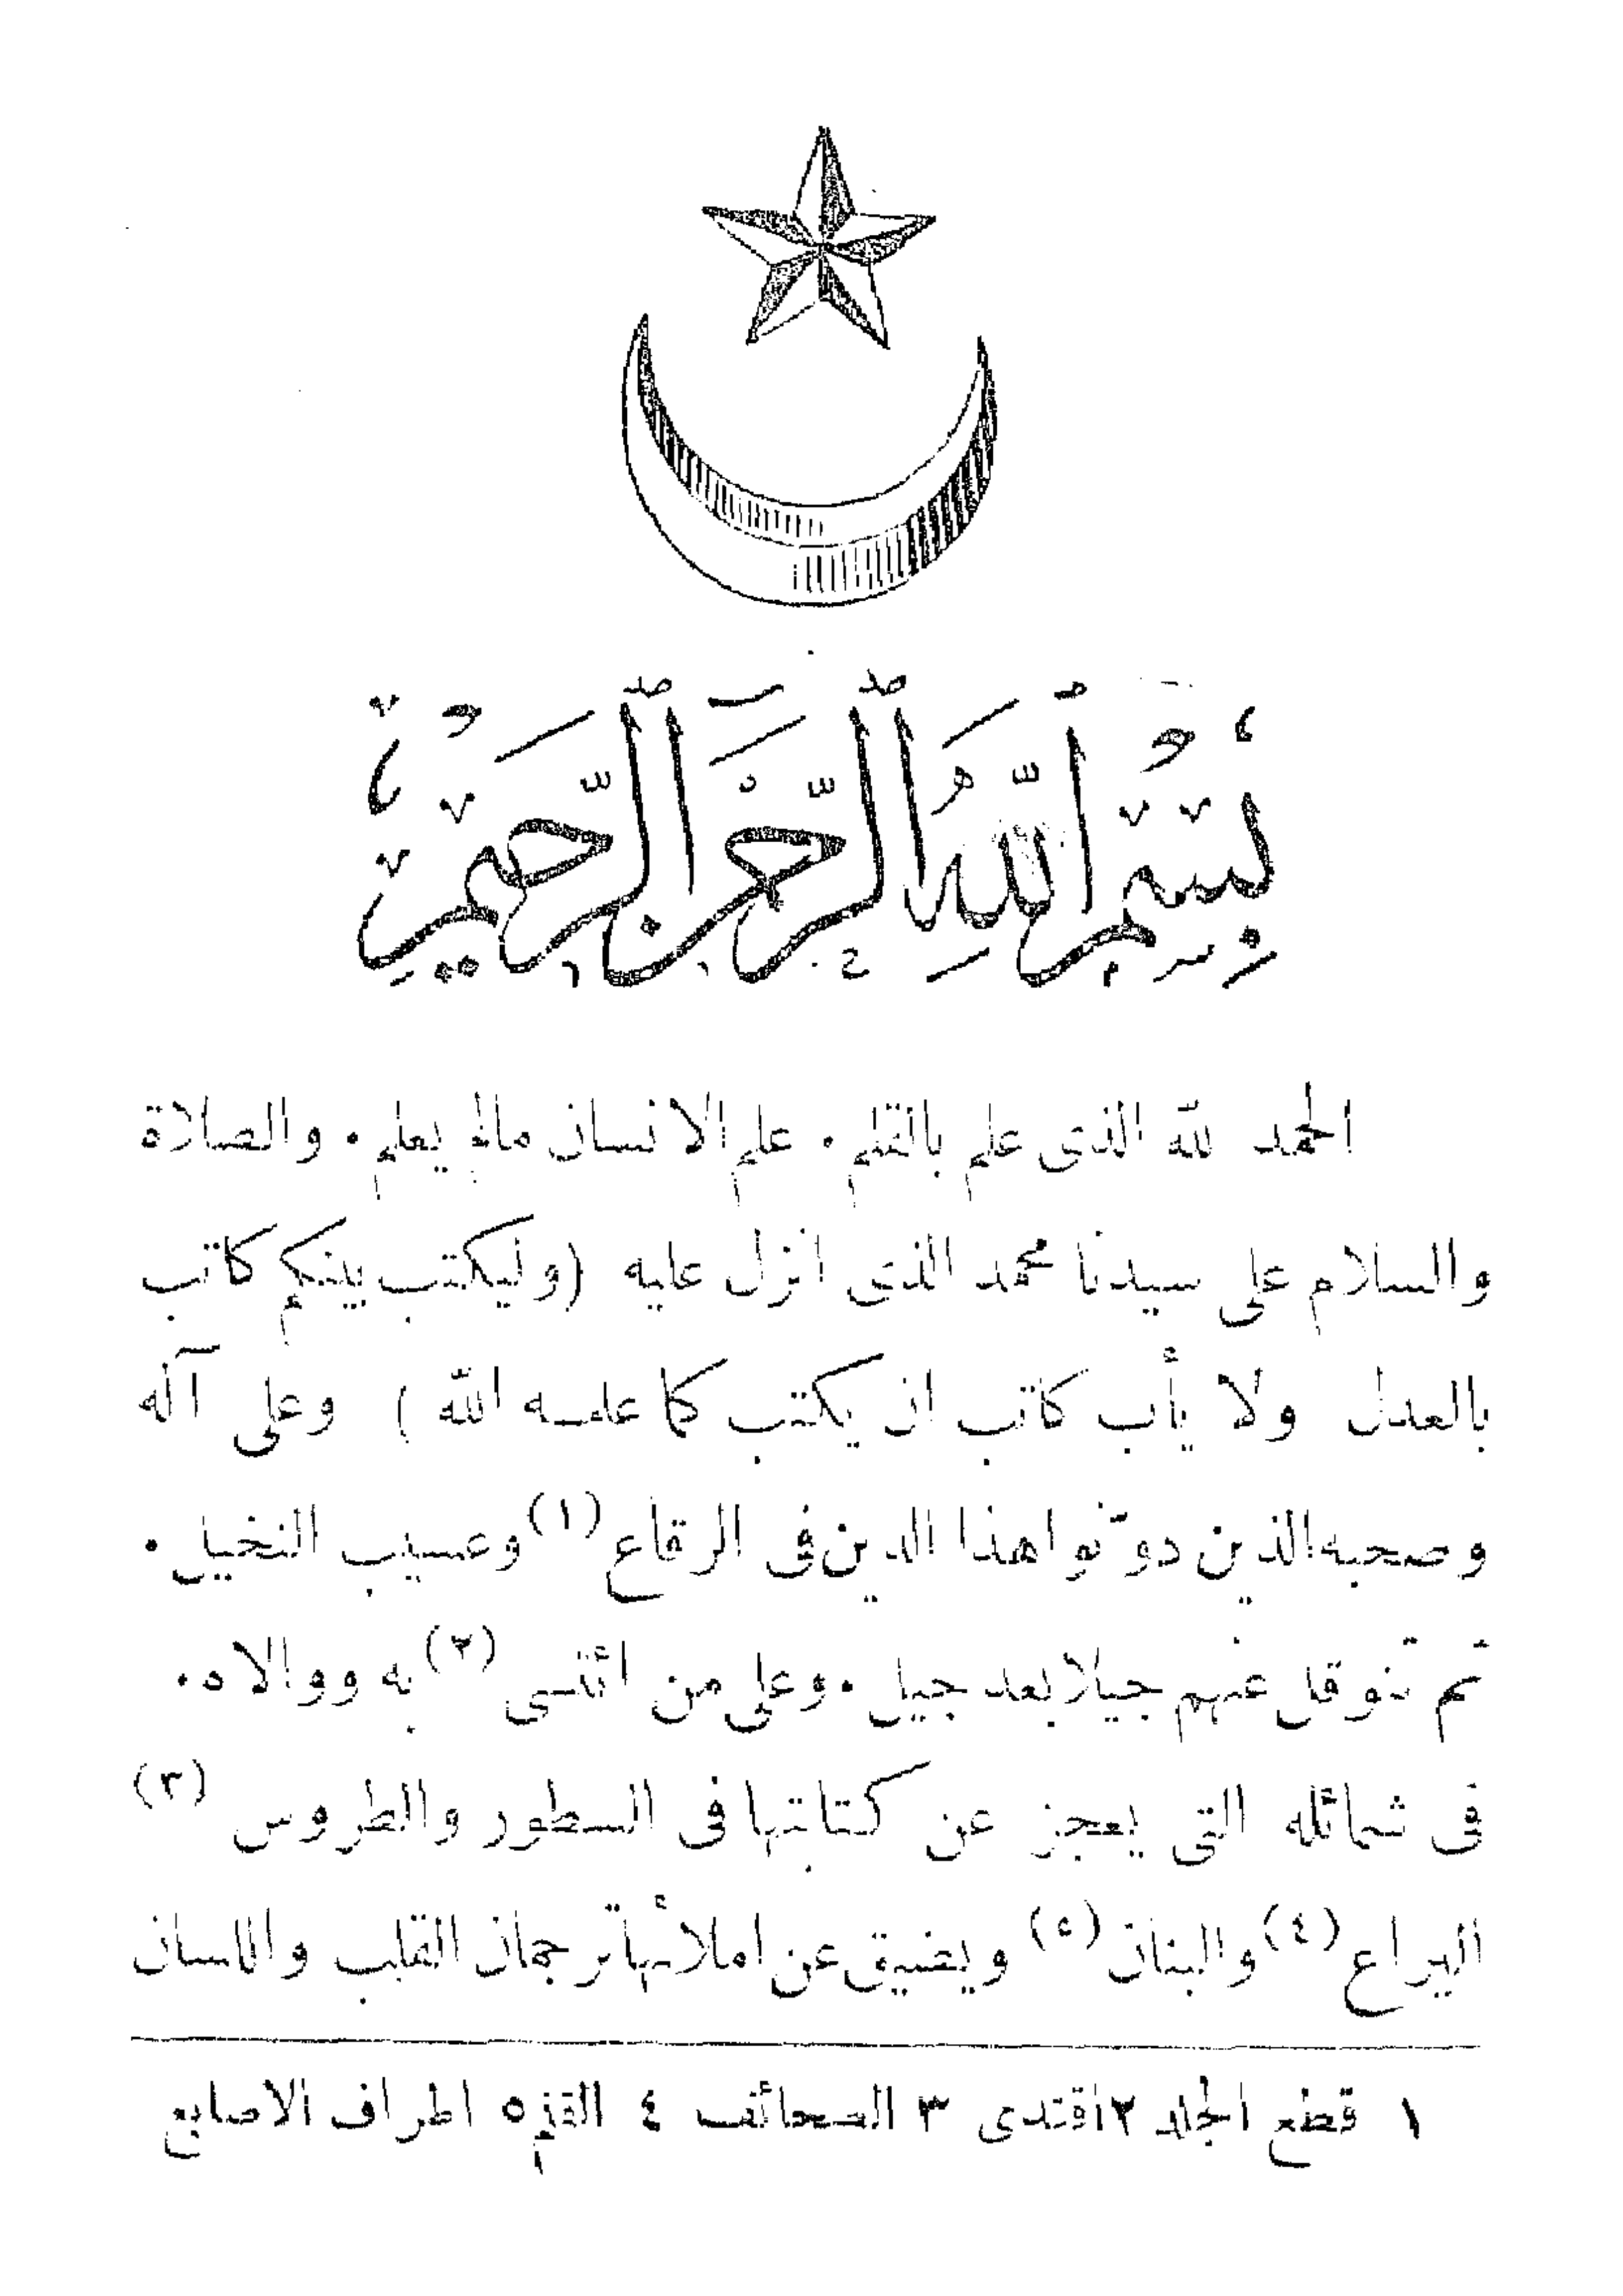 بِسْمِ ٱللَّهِ ٱلرَّحْمَنِ ٱلرَّحِيمِ
الحمد لله الذى علم بالقلم . علم الانسان مالم يعلم . والصلاة
والسلام على سيدنا محمد الذى انزل عليه (وليكتب بينكم كاتب
بالعدل ولا يأب كاتب ان يكتب كما علمـه الله ) وعلى آله
وصحبه الذين دوّنوا هذا الدين فى الرقاع (١) وعسيب النخيل .
ثم تنوقل عنهم جيلا بعد جيل . وعلى من ائتسى (٢) به ووالاه .
فى شمائله التى يعجز عن كتابتها فى السطور والطروس (٣)
اليراع (٤) والبنان (٥) ويضيق عن املائها ترجمان القلب واللسان
١ قطع الجلد ٢ اقتدى ٣ الصحائف ٤ القلم ٥ اطراف الاصابع